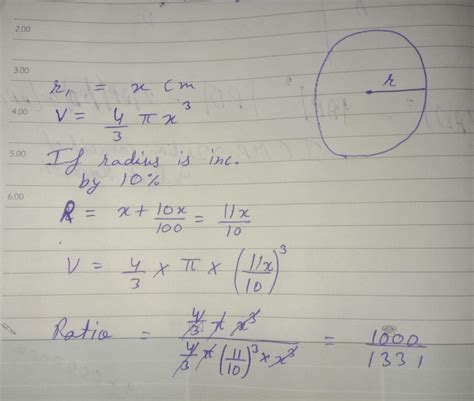 2.00
3.00
4.00
5.00
6.00
r
r₁ = x cm
V = 4/3 π x³
If radius is inc.
by 10%
R = x + 10x/100 = 11x/10
V = 4/3 × π × (11x/10)³
Ratio = 4/3 π x³ / 4/3 π (11/10)³ × x³ = 1000/1331